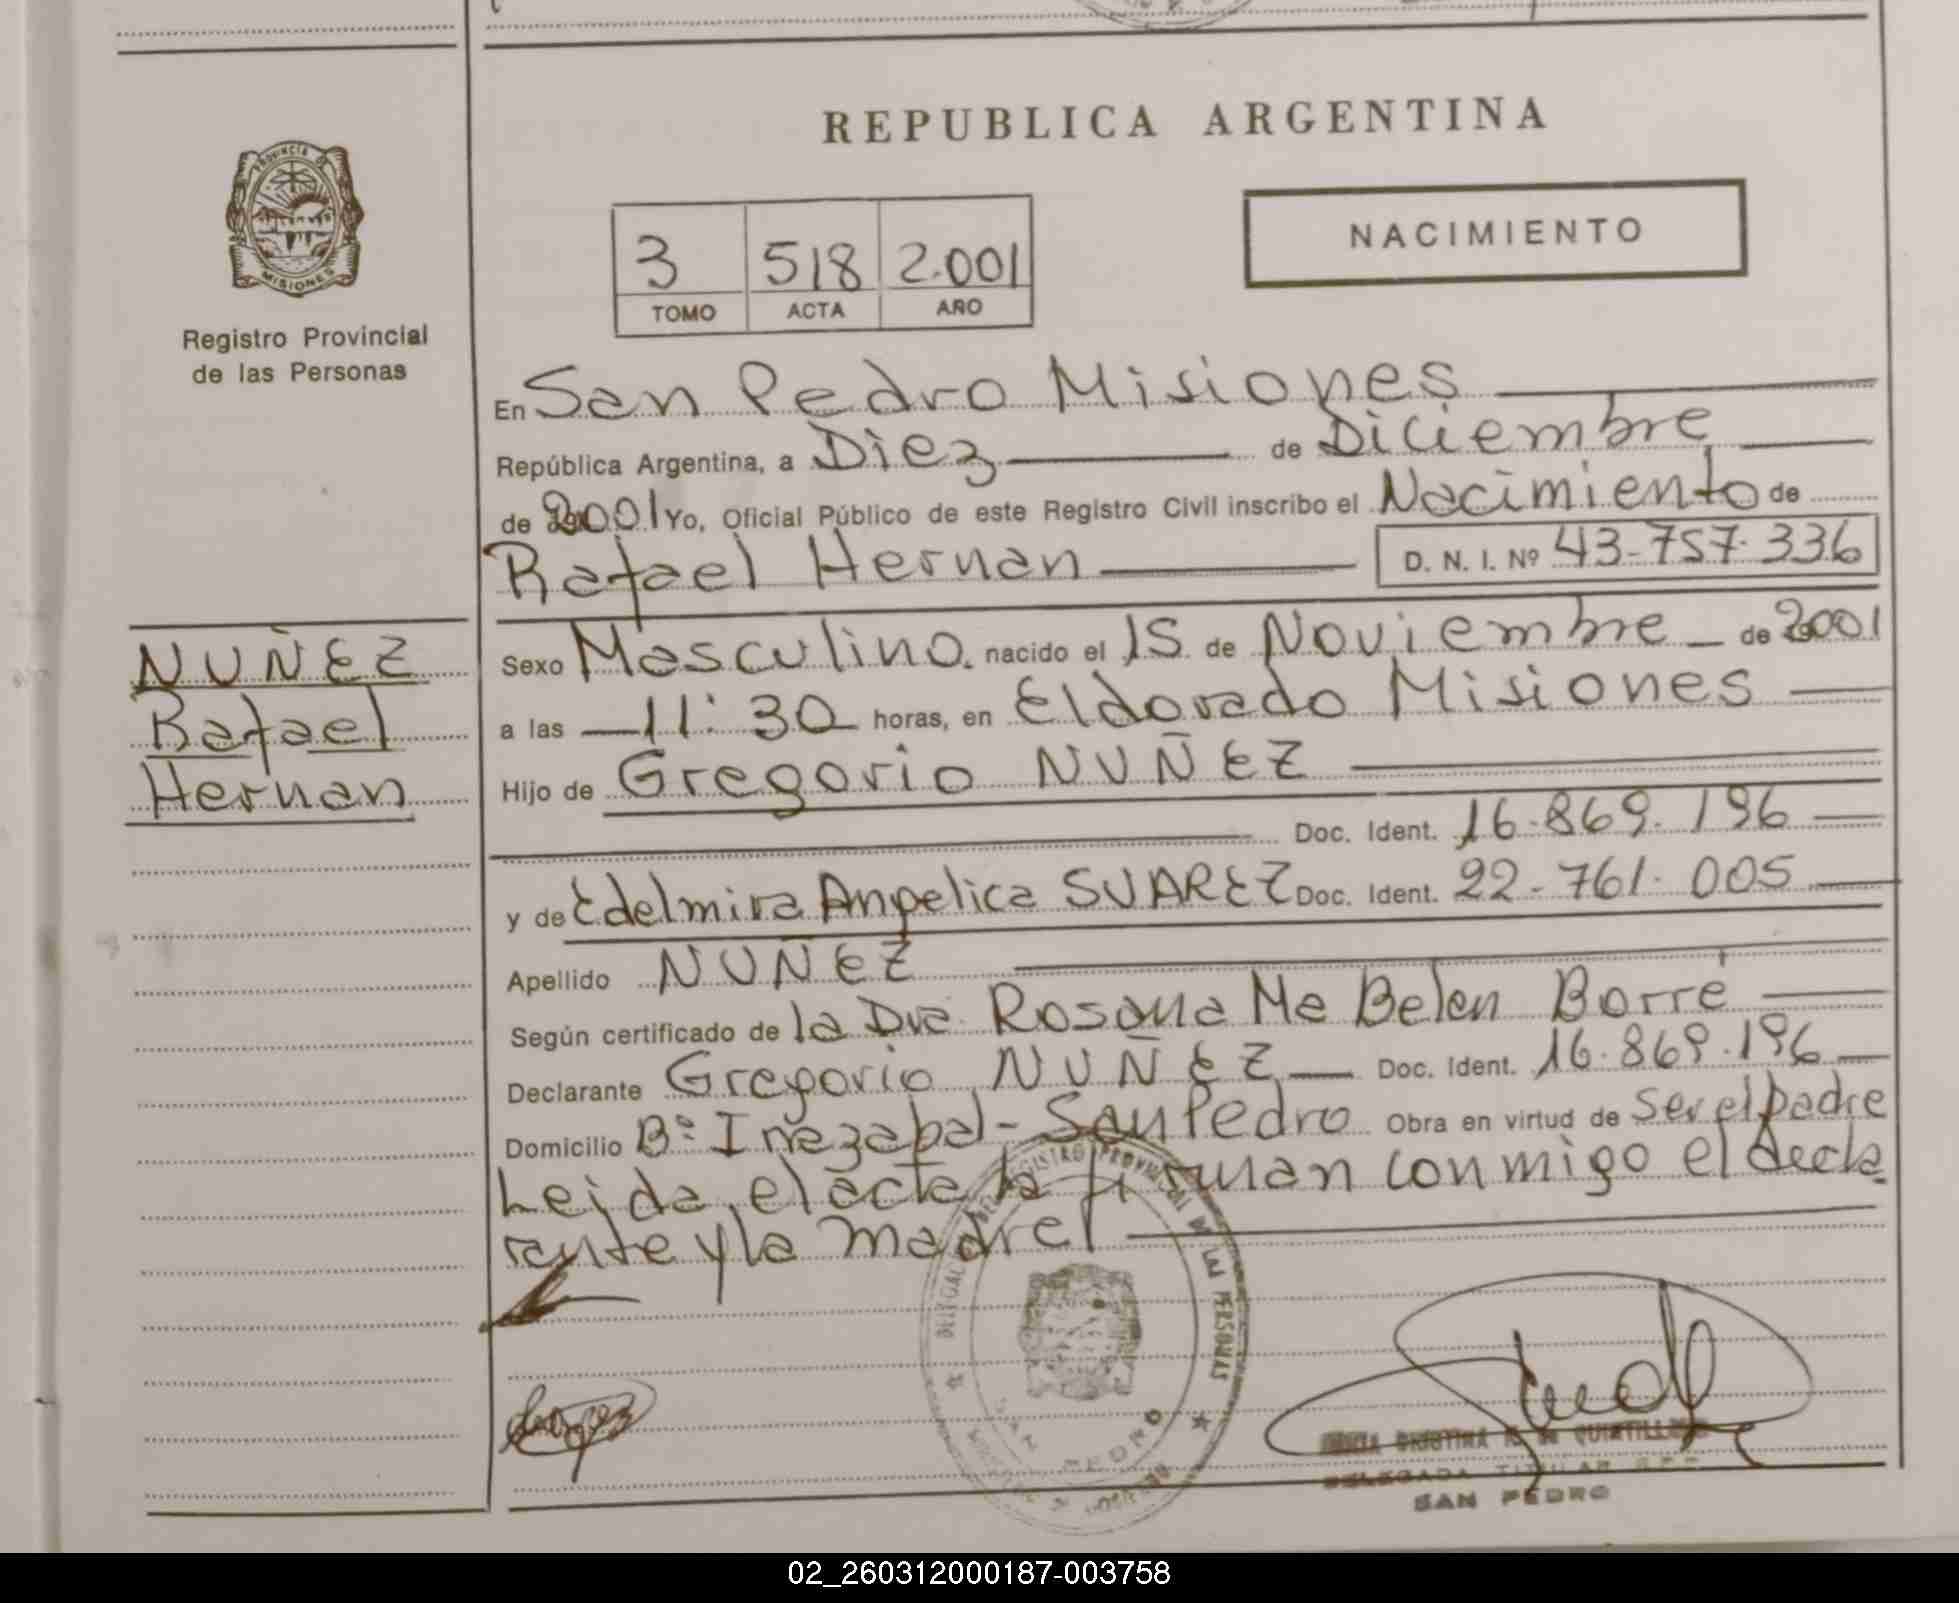 REPUBLICA ARGENTINA
PROVINCIA DE MISIONES
Registro Provincial
de las Personas
NACIMIENTO
3 518 2.001
TOMO ACTA AÑO
En San Pedro Misiones
República Argentina, a Diez de Diciembre
de 2001 Yo, Oficial Público de este Registro Civil inscribo el Nacimiento de
Rafael Hernan D. N. I. Nº 43-757.336
NUÑEZ
Rafael
Hernan
Sexo Masculino. nacido el 15 de Noviembre de 2001
a las 11:30 horas, en Eldorado Misiones
Hijo de Gregorio NUÑEZ
Doc. Ident. 16.869.196
y de Edelmira Angelica SUAREZ Doc. Ident. 22-761.005
Apellido NUÑEZ
Según certificado de la Dra. Rosana Ma Belen Borré
Declarante Gregorio NUÑEZ Doc. Ident. 16.869.196
Domicilio Bº Irezabal - San Pedro Obra en virtud de ser el padre
Leida el acta la firman conmigo el decla
rante y la madre
REGISTRO PROVINCIAL DE LAS PERSONAS
SAN PEDRO
CRISTINA DE QUINTILLANO
DELEGADA TITULAR
SAN PEDRO
02_260312000187-003758